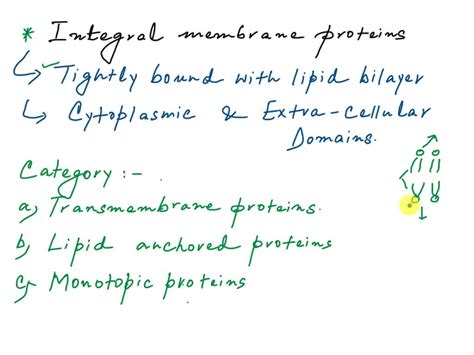 * Integral membrane proteins
↳ ✓Tightly bound with lipid bilayer
↳ Cytoplasmic & Extra-cellular
Domains.
Category :-
a) Transmembrane proteins.
b) Lipid anchored proteins
c) Monotopic proteins